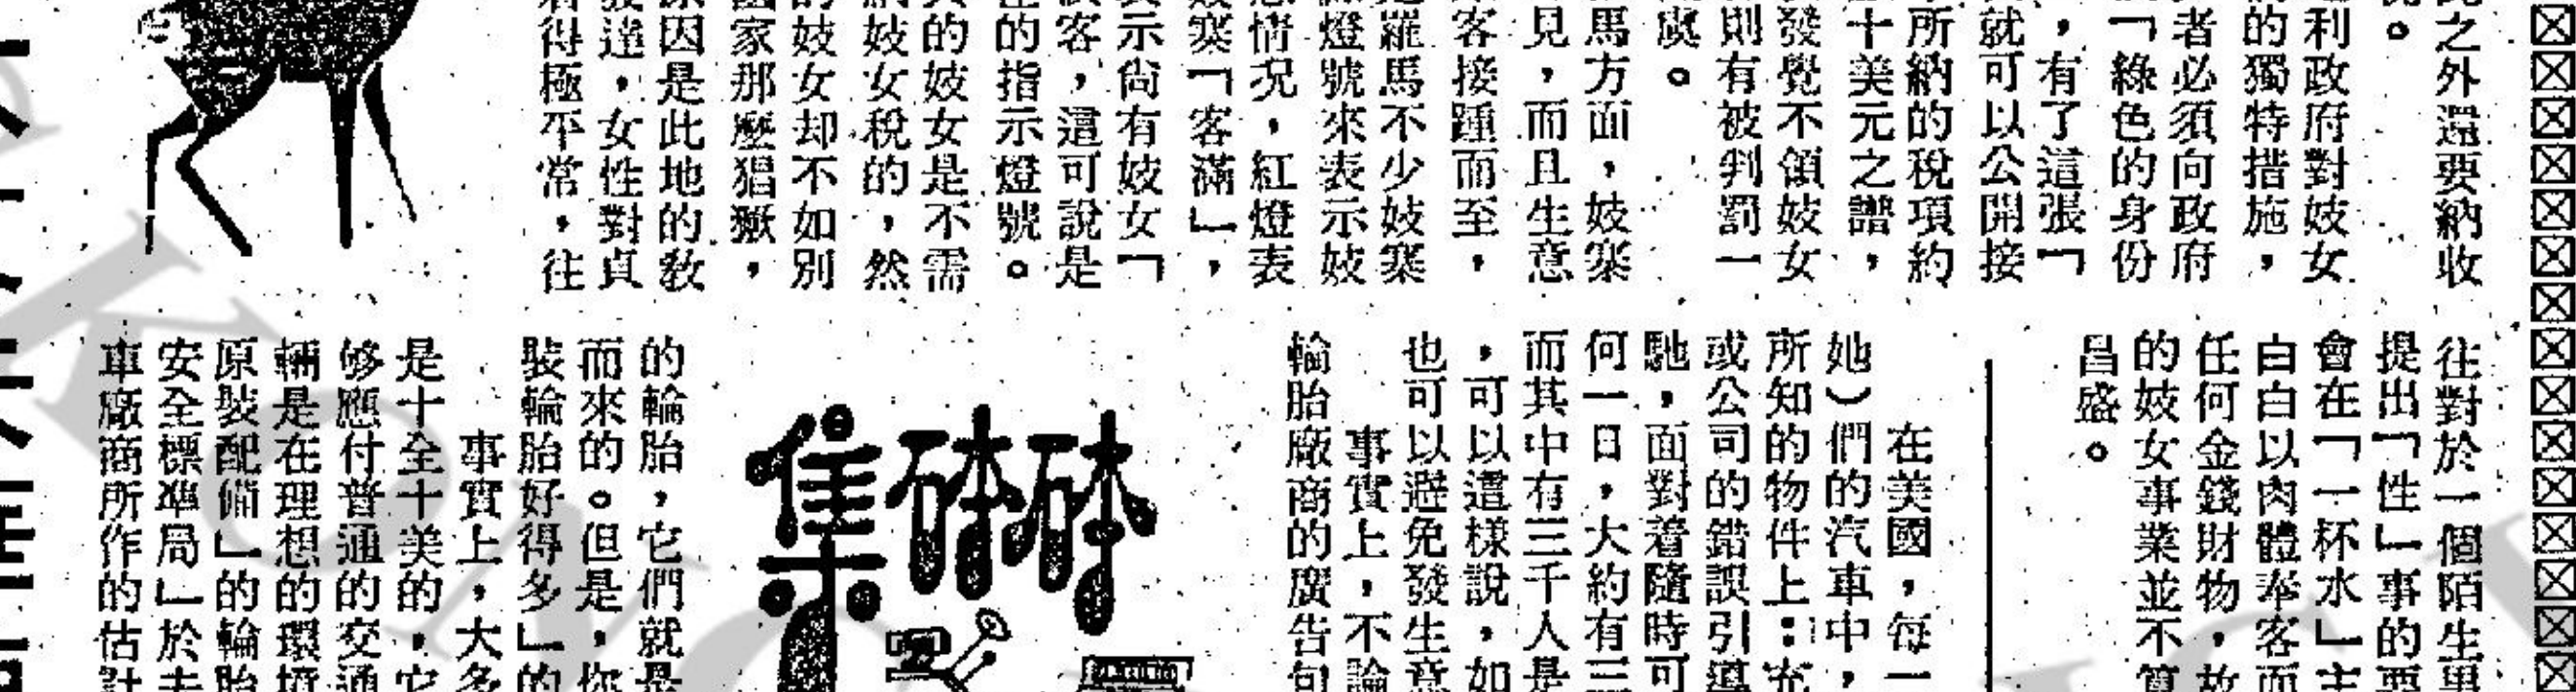 之外還要納收
。
利政府對妓女
的獨特措施，
者必須向政府
「綠色的身份
，有了這張「
就可以公開接
所納的稅項約
十美元之譜，
發覺不領妓女
則有被判罰一
虞。
馬方面，妓寨
見，而且生意
客接踵而至，
羅馬不少妓寨
燈號來表示妓
情況，紅燈表
寨「客滿」，
示尚有妓女「
客，這可說是
的指示燈號。
的妓女是不需
妓女稅的，然
的妓女却不如別
國家那麼猖獗，
原因是此地的教
發達，女性對貞
得極平常，往
往對於一個陌生男
提出「性」事的要
會在「一杯水」主
白白以肉體奉客而
任何金錢財物，故
的妓女事業並不算
昌盛。
在美國，每一
她）們的汽車中，
所知的物件上：充
或公司的錯誤引導
馳，面對着隨時可
何一日，大約有三
而其中有三千人是
，可以這樣說，如
也可以避免發生意
事實上，不論
輪胎廠商的廣告包
砵砵集
的輪胎，它們就是
而來的。但是，你
裝輪胎好得多」的
事實上，大多
是十全十美的，它
够應付普通的交通
輛是在理想的環境
原裝配備」的輪胎
安全標準局」於去
車廠商所作的估計